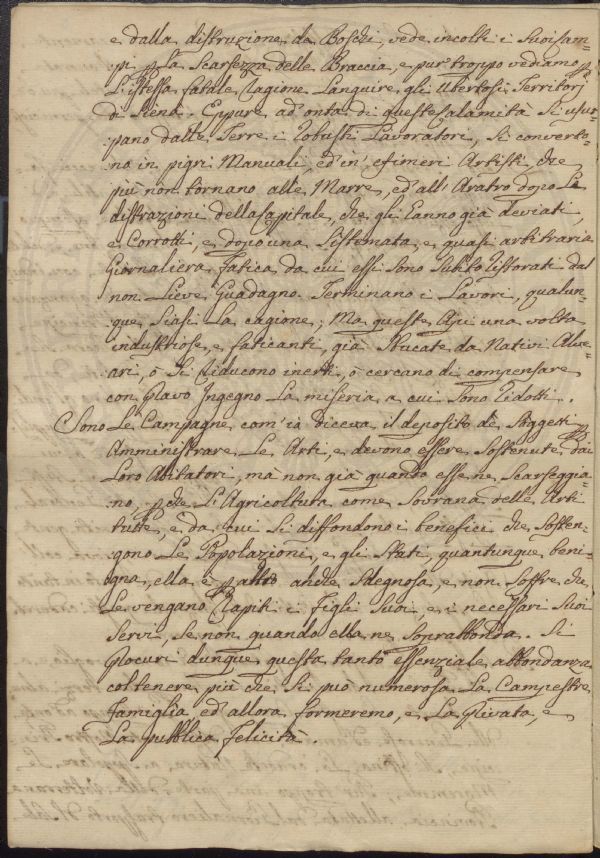 e dalla distruzione de Boschi, vede incolti i Suoi Cam-
pi p la Scarsezza delle Braccia, e pur troppo vediamo p
L'istessa fatale Cagione Languire gli Ubertosi Territorj
di Siena. Eppure ad'onta di queste Calamità Si usur-
pano dalle Terre i robusti Lavoratori, Si converto-
no in pigri Manuali, ed in' efimeri Artisti, che
più non tornano alle Marre, ed'all'Aratro dopo Le
distrazioni della Capitale, che gli anno già deviati,
e Corrotti, e dopo una Sistemata, e quasi arbitraria
Giornaliera Fatica da cui essi Sono Subito ristorati dal
non Lieve Guadagno. Terminano i Lavori, qualun-
que Siasi La cagione; Ma queste Api una volta
industriose, e faticanti, già Sbucate da Nativi Alve-
ari, ò Si riducono inerti, ò cercano di compensare
con Pravo Ingegno La miseria a cui Sono ridotti.
Sono Le Campagne com'io diceva il deposito de Soggetti p
Amministrare Le Arti, e devono essere Sostenute dai
Loro Abitatori, mà non già quando esse ne Scarseggia-
no, p che L'Agricoltura come Sovrana delle Arti
tutte, e da cui Si diffondono i benefici che Sosten-
gono Le Popolazioni, e gli Stati, quantunque beni-
gna, ella è p altro anche Sdegnosa, e non Soffre che
Le vengano Rapiti i Figli Suoi, e i necessari Suoi
Servi, Se non quando ella ne Soprabbonda. Si
Procuri dunque questa tanto essenziale abbondanza
col tenere più che Si può numerosa La Campestre
Famiglia ed'allora formeremo, e La Privata, e
La Pubblica felicità.